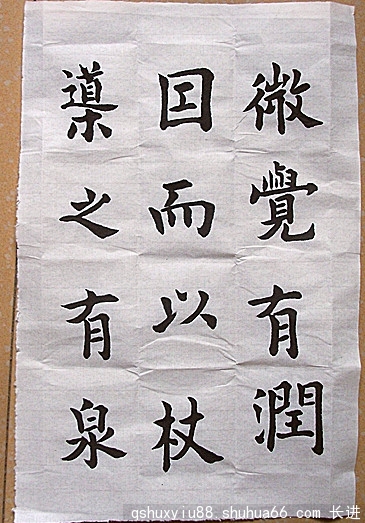 微覺有潤
囙而以杖
導之有泉
qshuxyiu88.shuhua66.com 长进